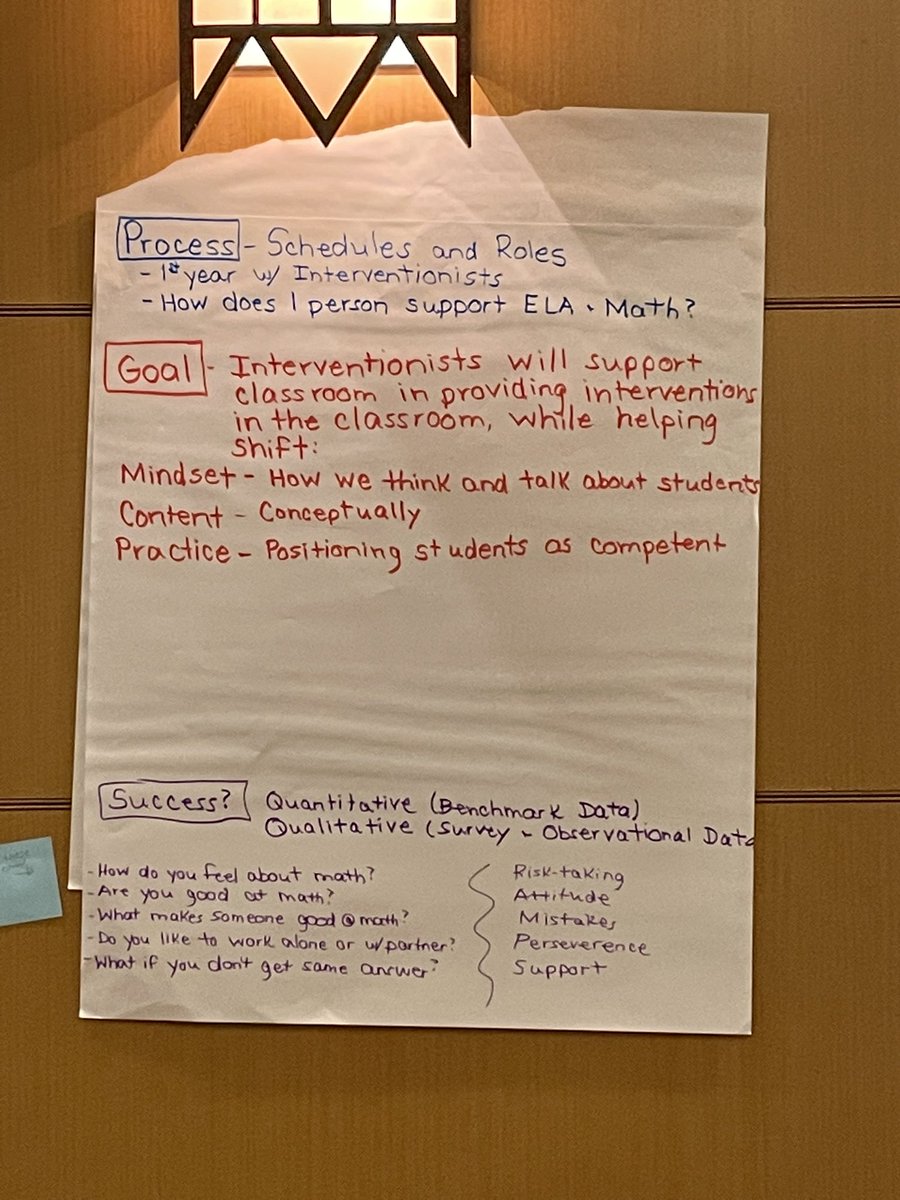 Process - Schedules and Roles
- 1st year w/ Interventionists
- How does 1 person support ELA + Math?
Goal - Interventionists will support
classroom in providing interventions
in the classroom, while helping
shift:
Mindset - How we think and talk about students
Content - Conceptually
Practice - Positioning students as competent
Success? Quantitative (Benchmark Data)
Qualitative (Survey + Observational Data
- How do you feel about math?
- Are you good at math?
- What makes someone good @ math?
- Do you like to work alone or w/ partner?
- What if you don't get same answer?
Risk-taking
Attitude
Mistakes
Perseverence
Support